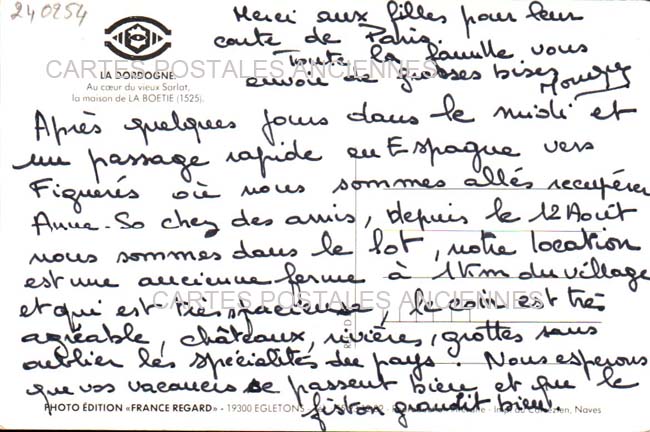 240254
Merci aux filles pour leur
carte de Paris.
Toute la famille vous
envoie de grosses bises
CARTES POSTALES ANCIENNES
LA DORDOGNE.
Au cœur du vieux Sarlat,
la maison de LA BOETIE (1525).
Après quelques jours dans le midi et
un passage rapide en Espagne vers
Figuerés où nous sommes allés recupérer
Anne-So chez des amis, depuis le 12 Août
nous sommes dans le lot, notre location
est une ancienne ferme à 1km du village
et qui est très spacieuse, le coin est très
CARTES POSTALES ANCIENNES
agréable, châteaux, rivières, grottes sans
oublier les spécialités du pays. Nous esperons
que vos vacances se passent bien et que le
fiston grandit bien.
PHOTO ÉDITION «FRANCE REGARD» - 19300 EGLETONS Naves